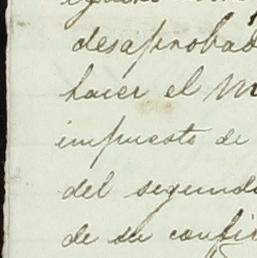 desaprobad
hacer el M
impuesto de
del segundo
de su confir